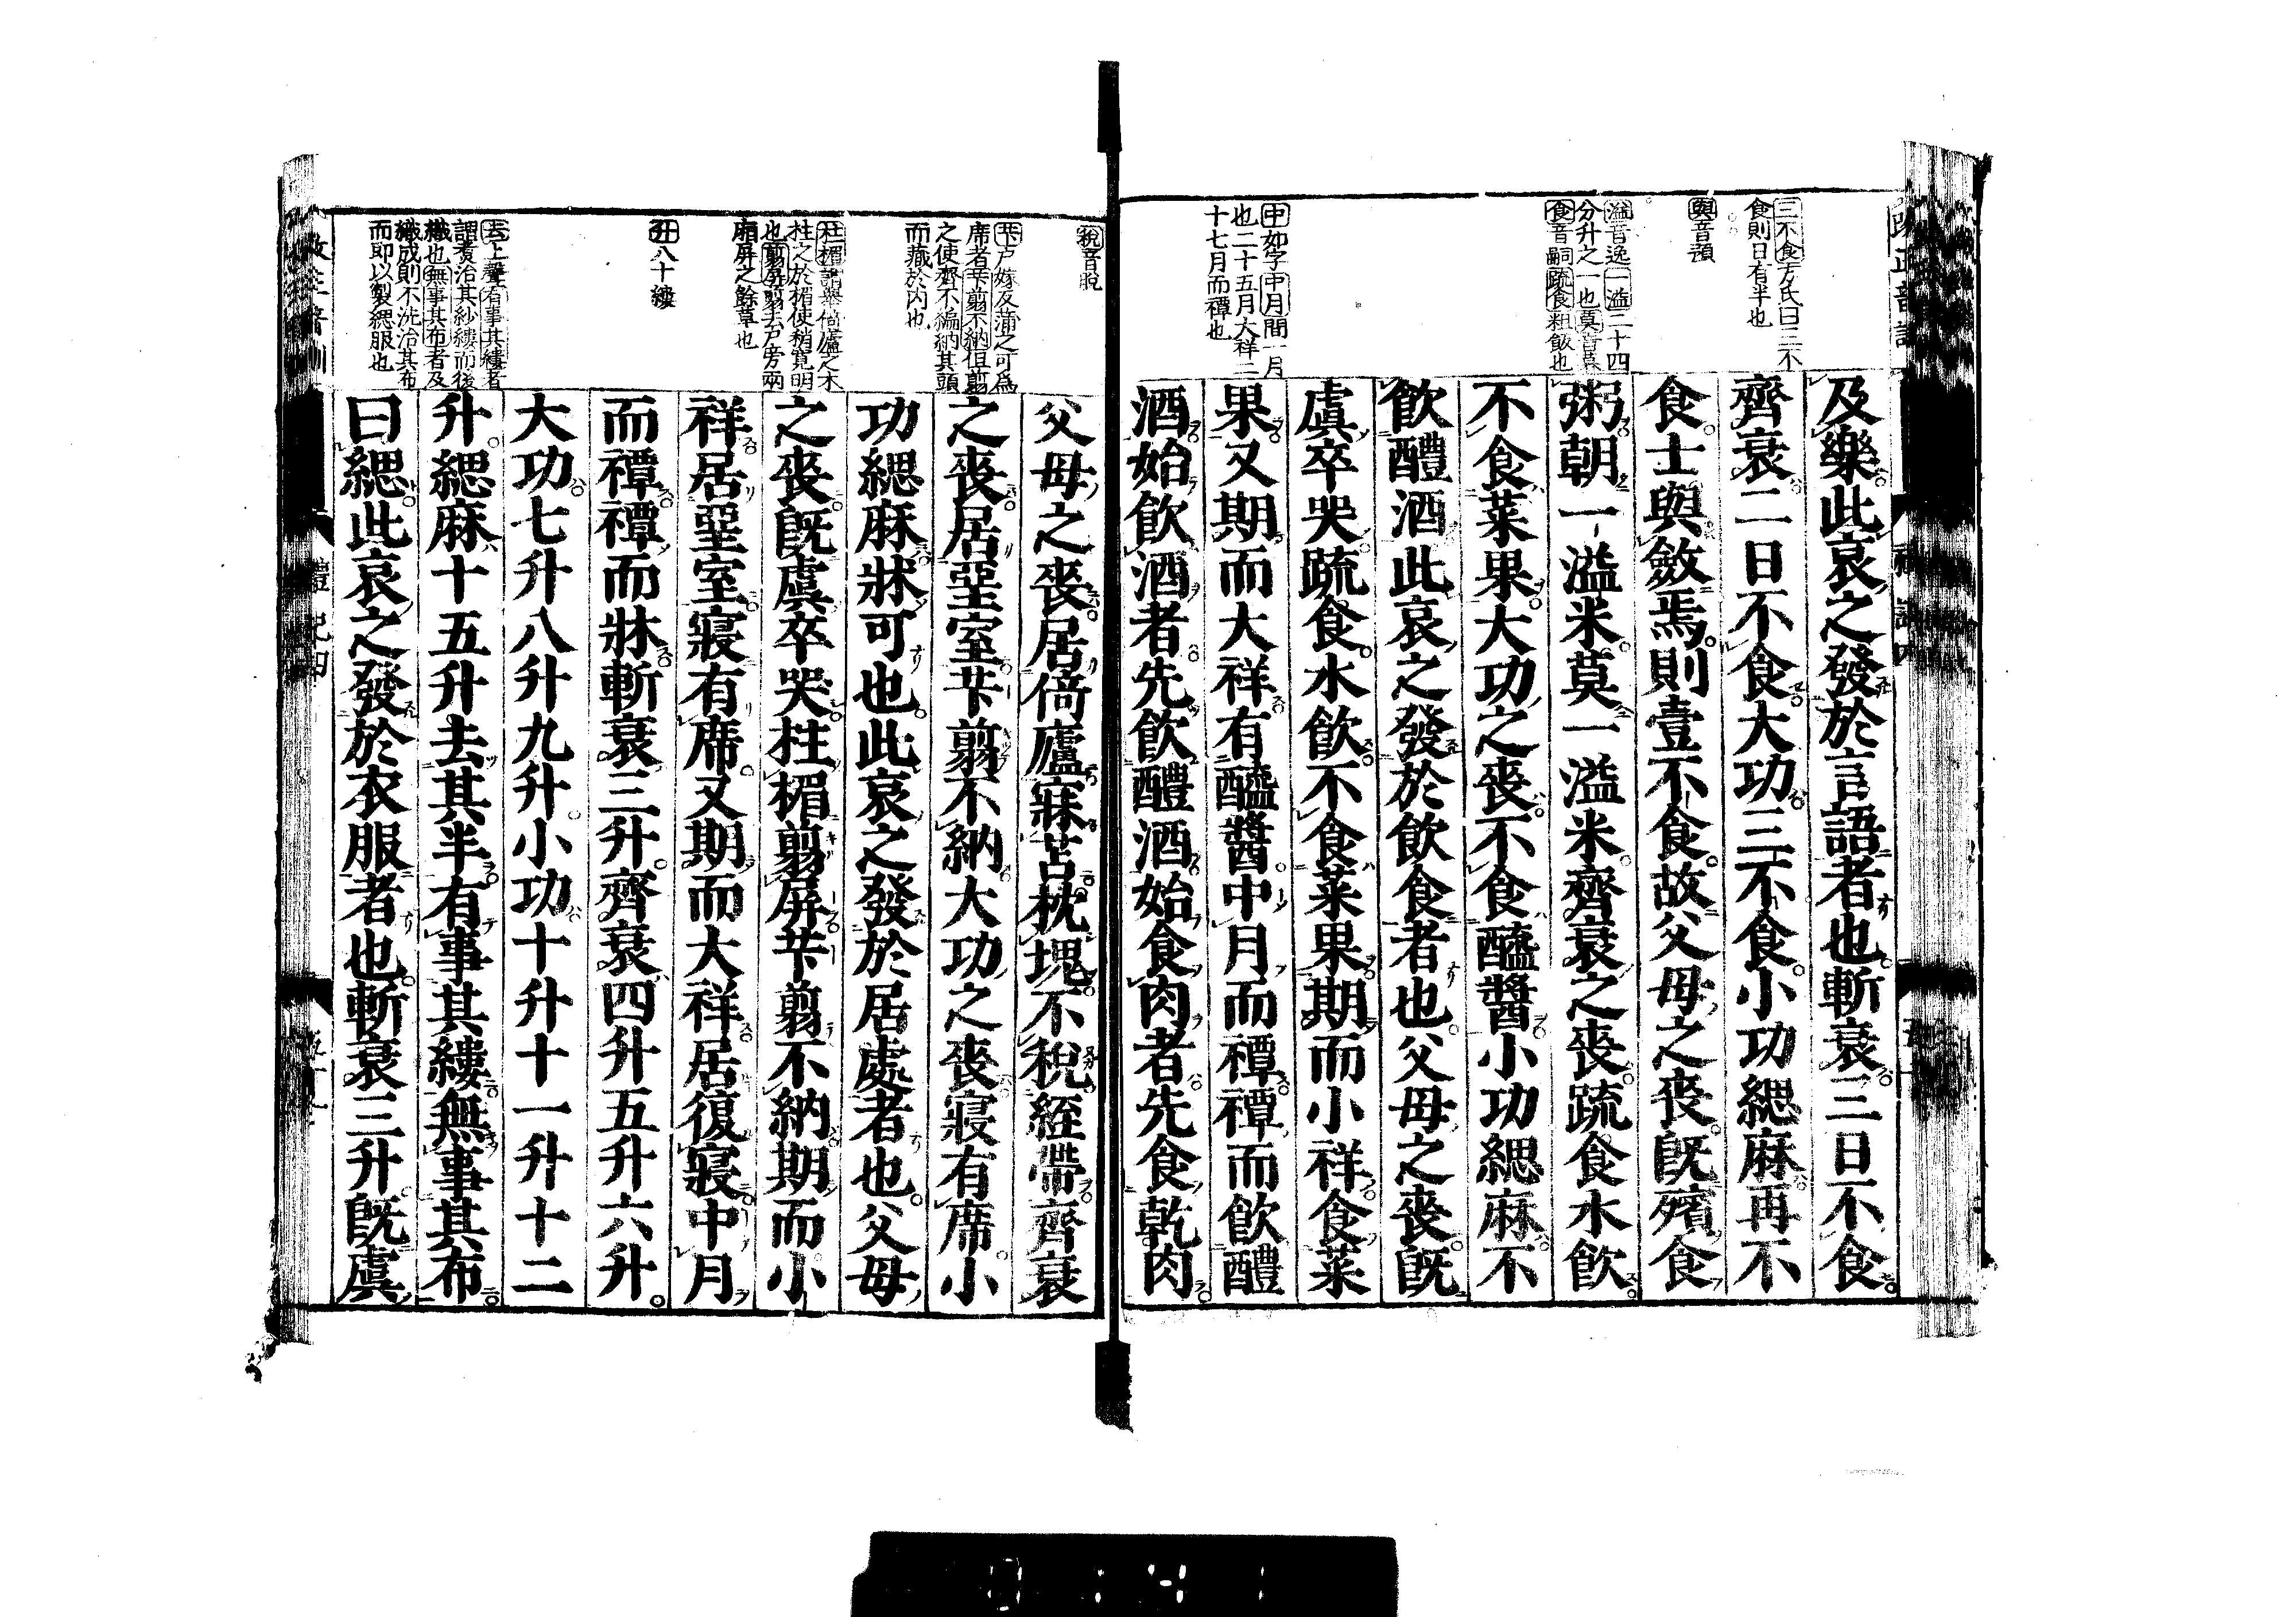 三不食方氏曰三不
食則日有半也
與音預
溢音逸一溢二十四
分升之一也莫音暮
食音嗣疏食粗飯也
中如字中月間一月
也二十五月大祥二
十七月而禫也
及樂此哀之發於言語者也斬衰三日不食
齊衰二日不食大功三不食小功緦麻再不
食士與斂焉則壹不食故父母之喪既殯食
粥朝一溢米莫一溢米齊衰之喪疏食水飲
不食菜果大功之喪不食醯醬小功緦麻不
飲醴酒此哀之發於飲食者也父母之喪既
虞卒哭疏食水飲不食菜果期而小祥食菜
果又期而大祥有醯醬中月而禫禫而飲醴
酒始飲酒者先飲醴酒始食肉者先食乾肉
稅音脫
苄戶嫁反蒲之可為
席者苄翦不納但翦
之使齊不編納其頭
而藏於內也
柱楣謂舉倚廬之木
柱之於楣使稍寬明
也翦屏翦去戶旁兩
廂屏之餘草也
升八十縷
去上聲有事其縷者
謂煑治其紗縷而後
織也無事其布者及
織成則不洗治其布
而即以製緦服也
父母之喪居倚廬寐苫枕塊不稅絰帶齊衰
之喪居堊室苄翦不納大功之喪寢有席小
功緦麻牀可也此哀之發於居處者也父母
之喪既虞卒哭柱楣翦屏苄翦不納期而小
祥居堊室寢有席又期而大祥居復寢中月
而禫禫而牀斬衰三升齊衰四升五升六升
大功七升八升九升小功十升十一升十二
升緦麻十五升去其半有事其縷無事其布
曰緦此哀之發於衣服者也斬衰三升既虞
禮記四